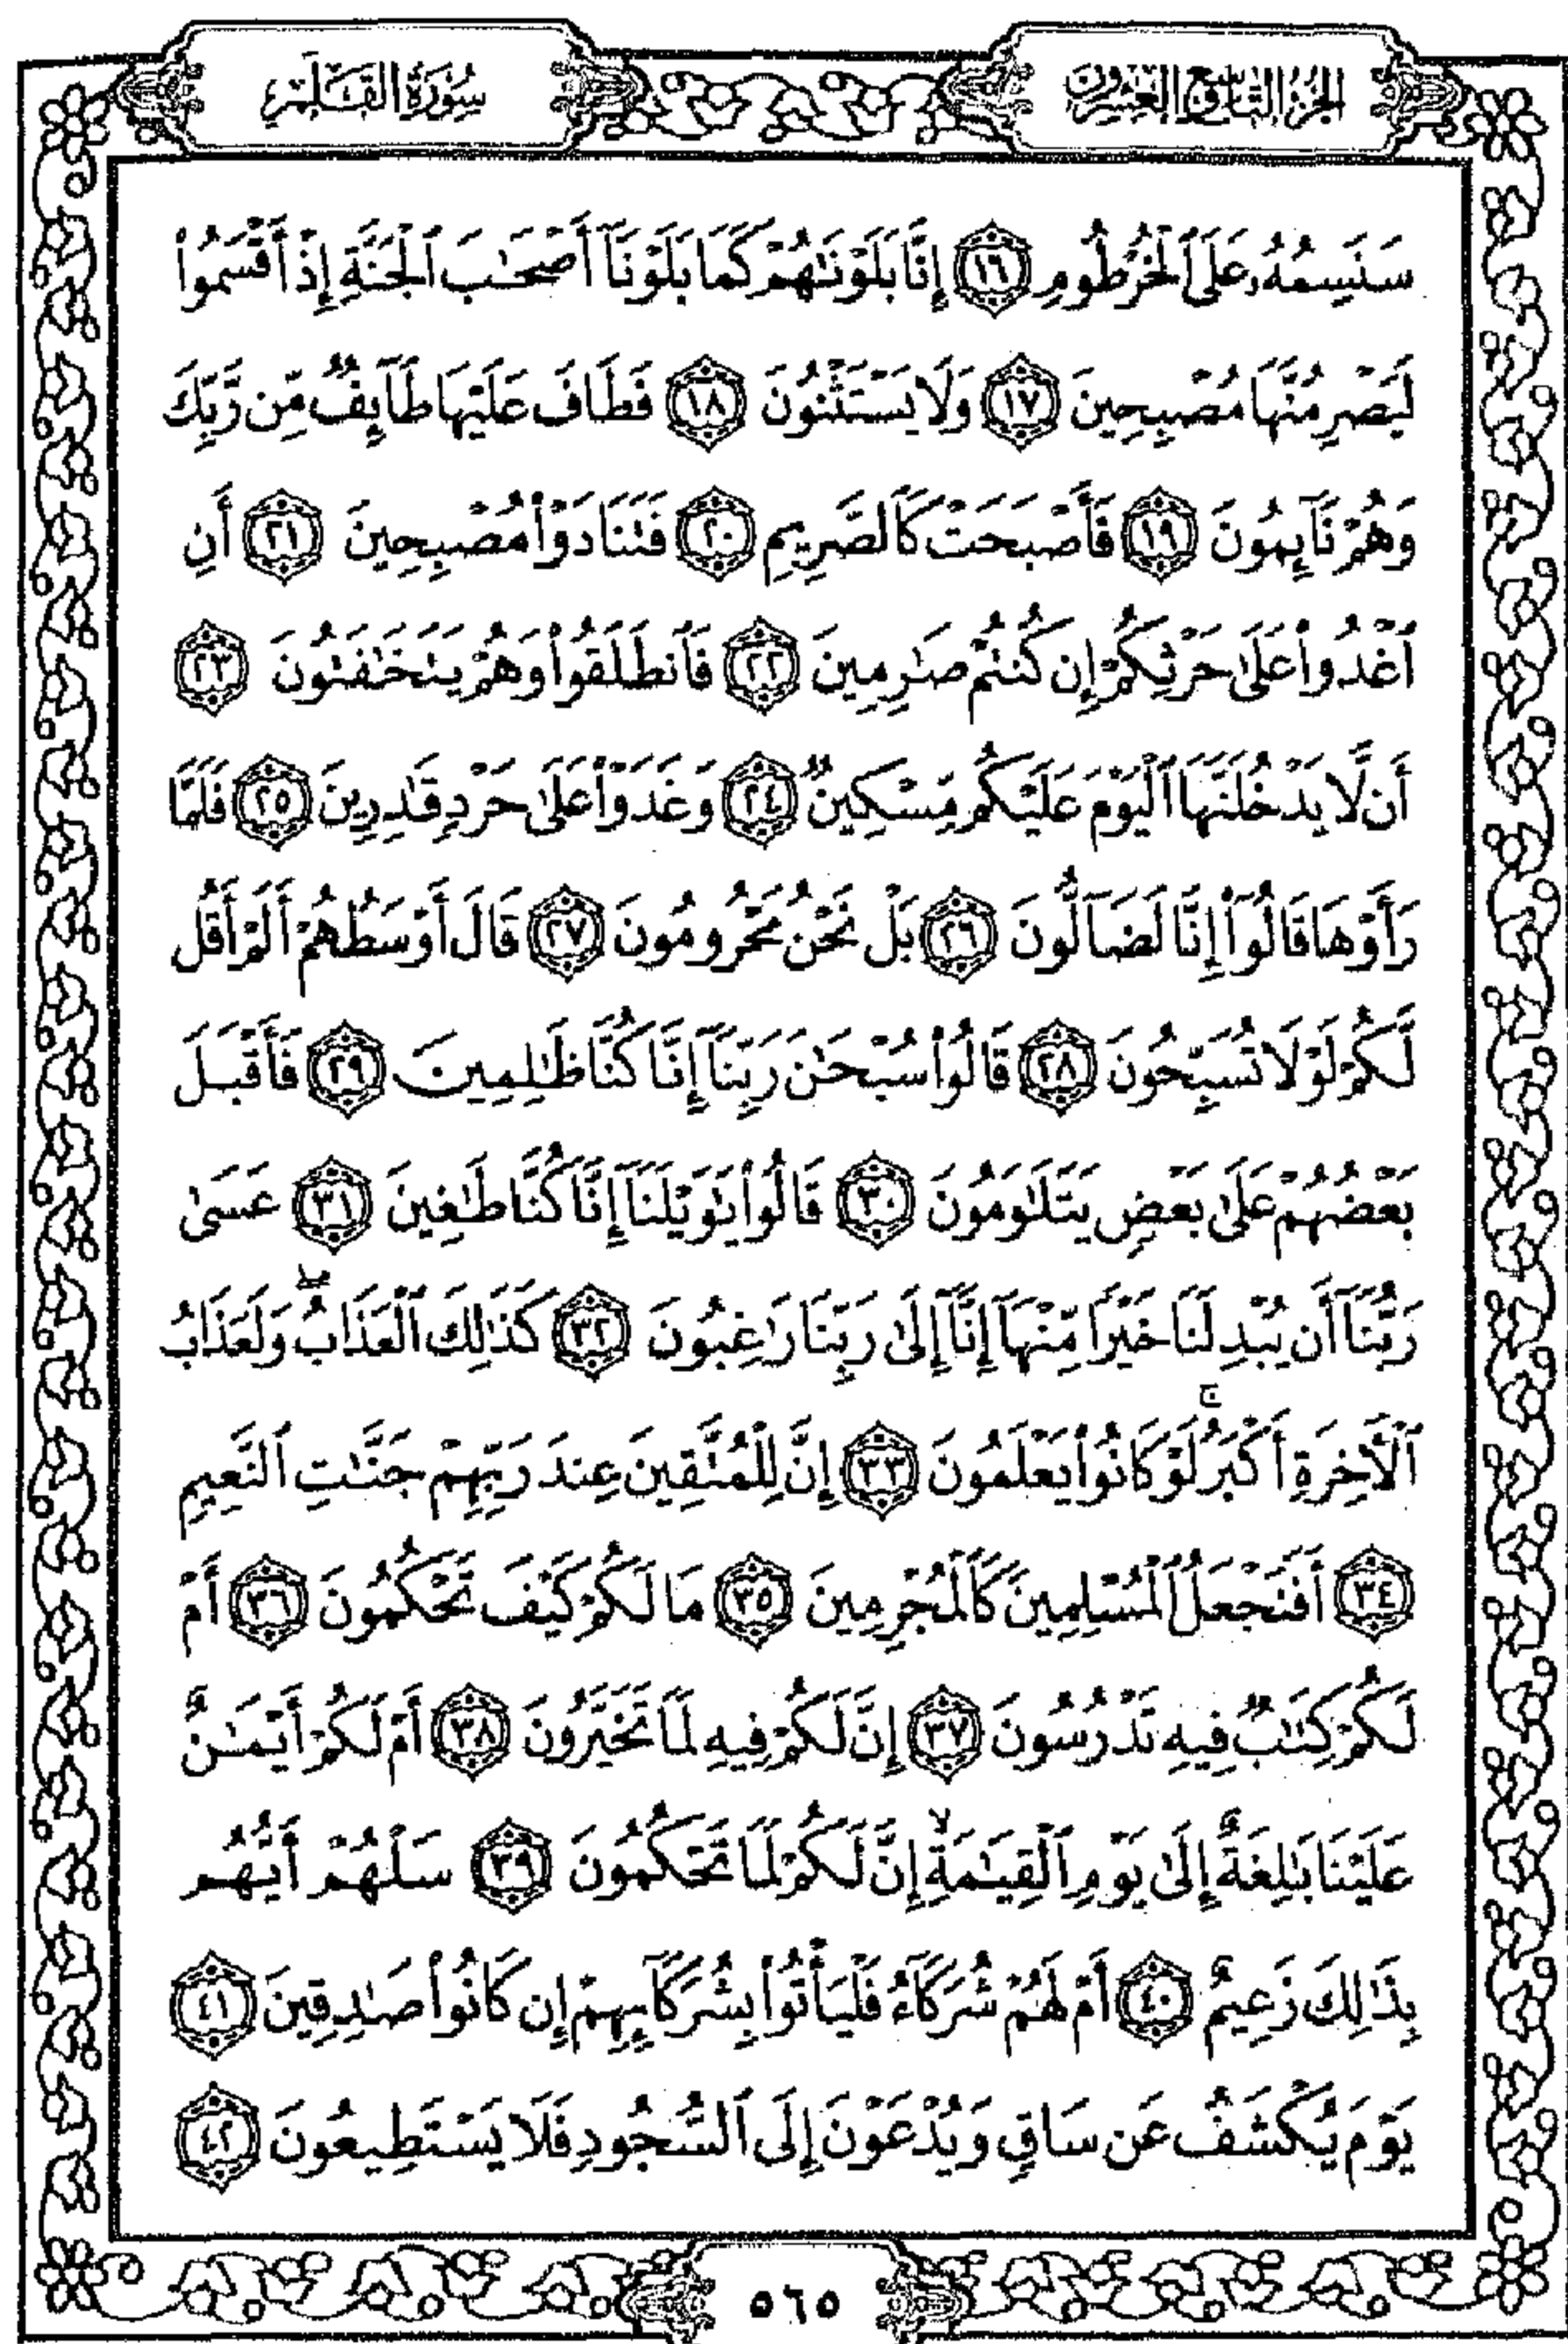 الجزء التاسع والعشرون
سُورَةُ القَلَمِ
سَنَسِمُهُۥ عَلَى ٱلْخُرْطُومِ ١٦ إِنَّا بَلَوْنَٰهُمْ كَمَا بَلَوْنَآ أَصْحَٰبَ ٱلْجَنَّةِ إِذْ أَقْسَمُوا۟
لَيَصْرِمُنَّهَا مُصْبِحِينَ ١٧ وَلَا يَسْتَثْنُونَ ١٨ فَطَافَ عَلَيْهَا طَآئِفٌ مِّن رَّبِّكَ
وَهُمْ نَآئِمُونَ ١٩ فَأَصْبَحَتْ كَٱلصَّرِيمِ ٢٠ فَتَنَادَوْا۟ مُصْبِحِينَ ٢١ أَنِ
ٱغْدُوا۟ عَلَىٰ حَرْثِكُمْ إِن كُنتُمْ صَٰرِمِينَ ٢٢ فَٱنطَلَقُوا۟ وَهُمْ يَتَخَٰفَتُونَ ٢٣
أَن لَّا يَدْخُلَنَّهَا ٱلْيَوْمَ عَلَيْكُم مِّسْكِينٌ ٢٤ وَغَدَوْا۟ عَلَىٰ حَرْدٍ قَٰدِرِينَ ٢٥ فَلَمَّا
رَأَوْهَا قَالُوٓا۟ إِنَّا لَضَآلُّونَ ٢٦ بَلْ نَحْنُ مَحْرُومُونَ ٢٧ قَالَ أَوْسَطُهُمْ أَلَمْ أَقُل
لَّكُمْ لَوْلَا تُسَبِّحُونَ ٢٨ قَالُوا۟ سُبْحَٰنَ رَبِّنَآ إِنَّا كُنَّا ظَٰلِمِينَ ٢٩ فَأَقْبَلَ
بَعْضُهُمْ عَلَىٰ بَعْضٍ يَتَلَٰوَمُونَ ٣٠ قَالُوا۟ يَٰوَيْلَنَآ إِنَّا كُنَّا طَٰغِينَ ٣١ عَسَىٰ
رَبُّنَآ أَن يُبْدِلَنَا خَيْرًا مِّنْهَآ إِنَّآ إِلَىٰ رَبِّنَا رَٰغِبُونَ ٣٢ كَذَٰلِكَ ٱلْعَذَابُ ۖ وَلَعَذَابُ
ٱلْأَخِرَةِ أَكْبَرُ ۚ لَوْ كَانُوا۟ يَعْلَمُونَ ٣٣ إِنَّ لِلْمُتَّقِينَ عِندَ رَبِّهِمْ جَنَّٰتِ ٱلنَّعِيمِ
٣٤ أَفَنَجْعَلُ ٱلْمُسْلِمِينَ كَٱلْمُجْرِمِينَ ٣٥ مَا لَكُمْ كَيْفَ تَحْكُمُونَ ٣٦ أَمْ
لَكُمْ كِتَٰبٌ فِيهِ تَدْرُسُونَ ٣٧ إِنَّ لَكُمْ فِيهِ لَمَا تَخَيَّرُونَ ٣٨ أَمْ لَكُمْ أَيْمَٰنٌ
عَلَيْنَا بَٰلِغَةٌ إِلَىٰ يَوْمِ ٱلْقِيَٰمَةِ ۙ إِنَّ لَكُمْ لَمَا تَحْكُمُونَ ٣٩ سَلْهُمْ أَيُّهُم
بِذَٰلِكَ زَعِيمٌ ٤٠ أَمْ لَهُمْ شُرَكَآءُ فَلْيَأْتُوا۟ بِشُرَكَآئِهِمْ إِن كَانُوا۟ صَٰدِقِينَ ٤١
يَوْمَ يُكْشَفُ عَن سَاقٍ وَيُدْعَوْنَ إِلَى ٱلسُّجُودِ فَلَا يَسْتَطِيعُونَ ٤٢
٥٦٥